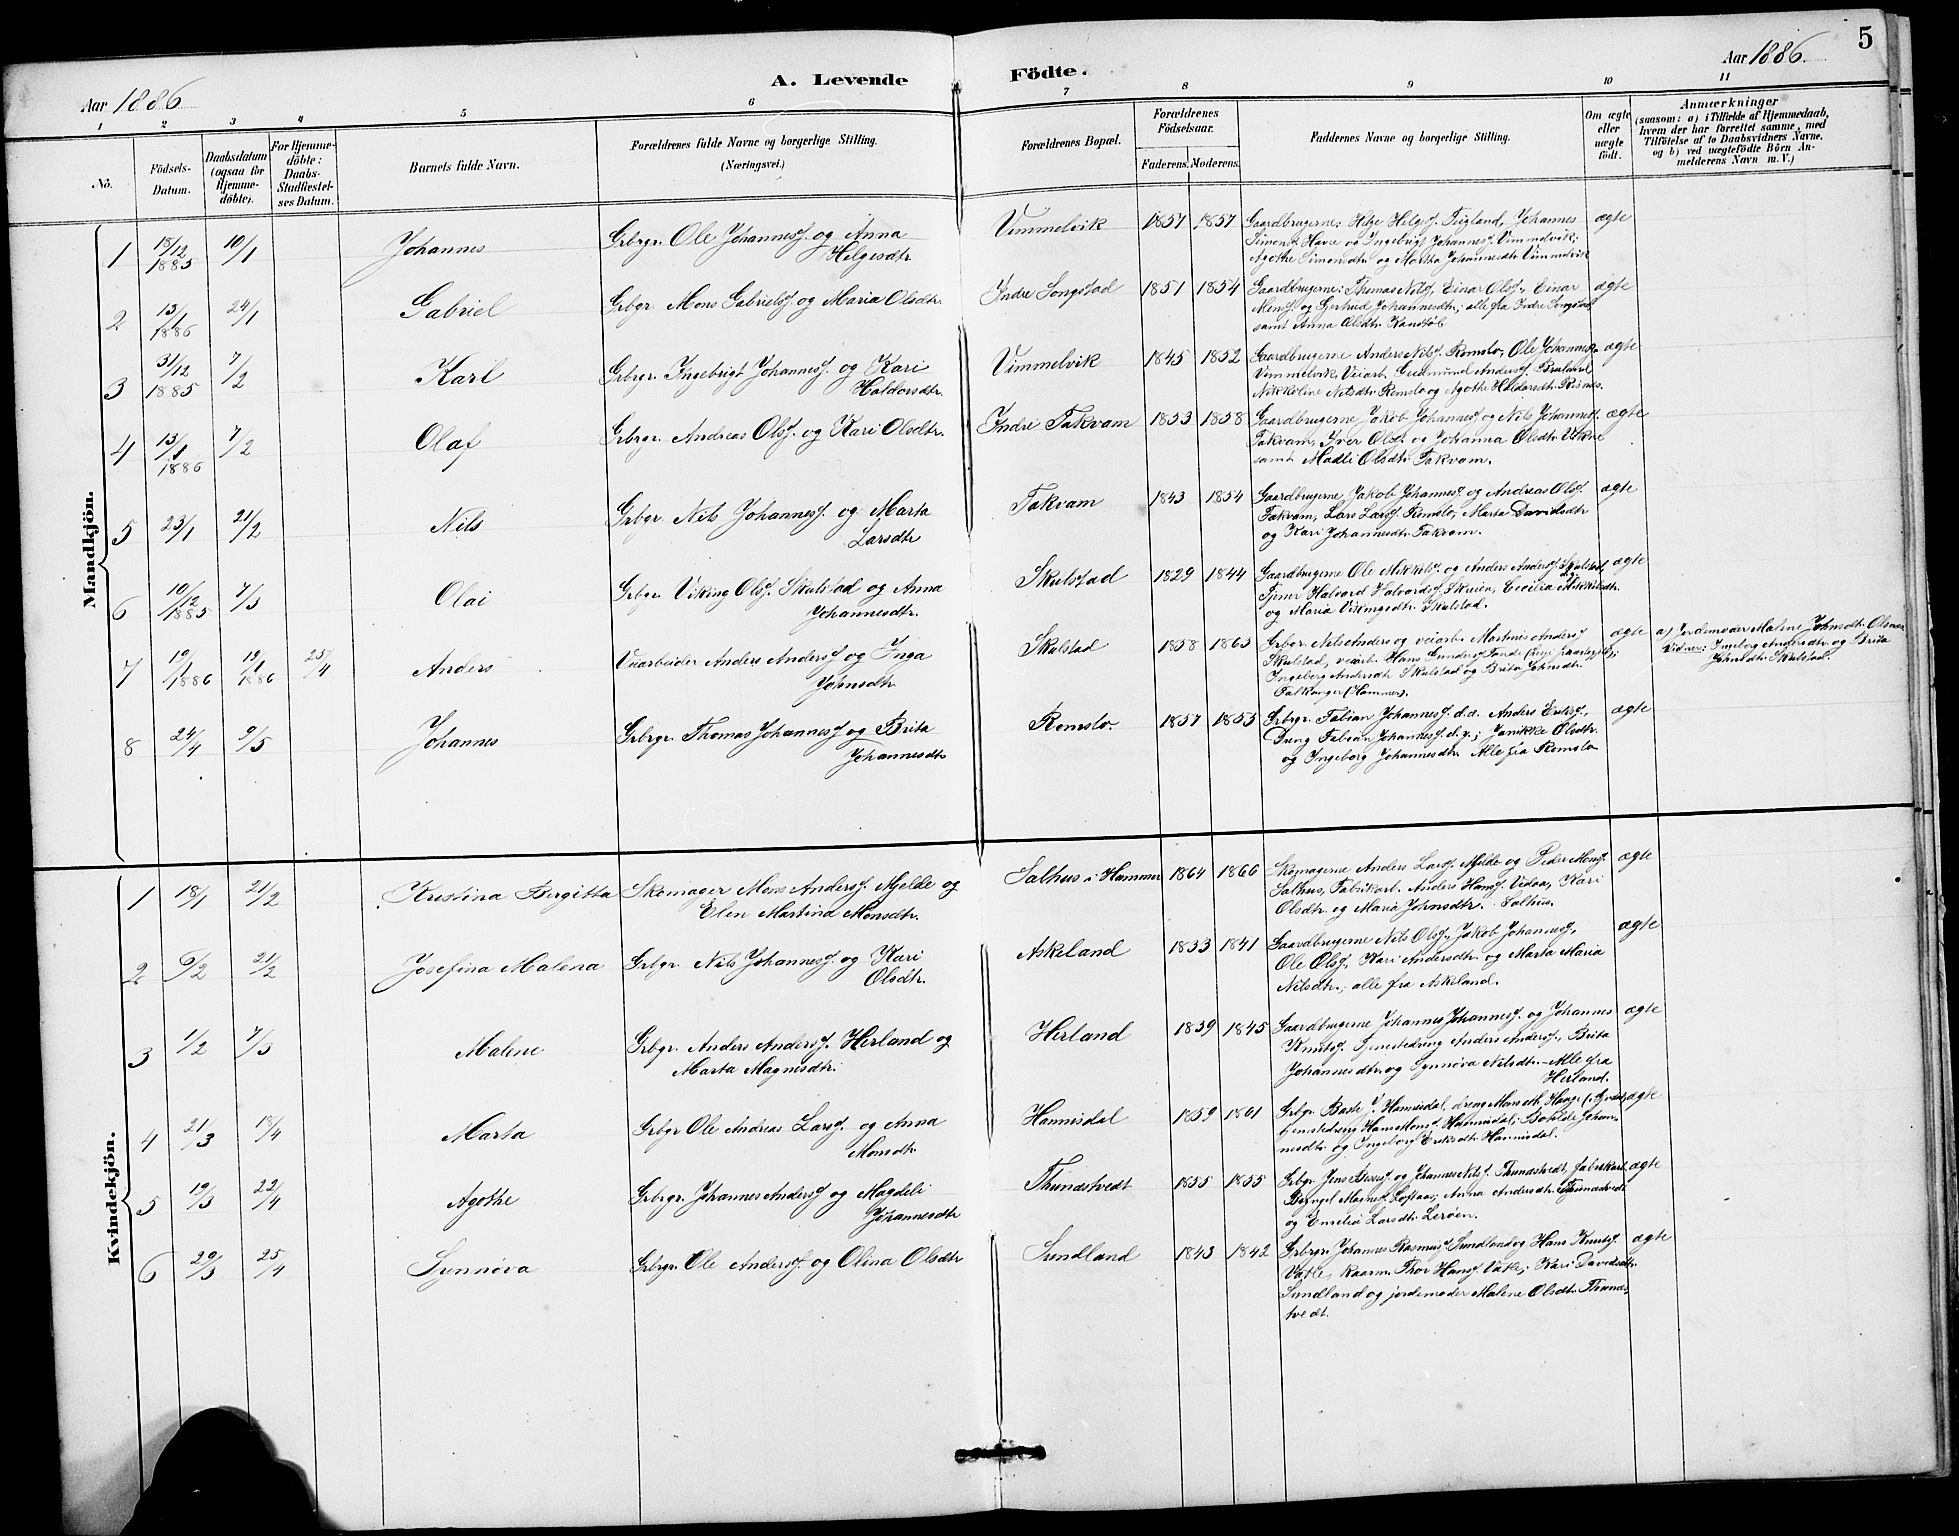 5
Aar 1886
A. Levende Födte.
Aar 1886
1 2 3 4 5 6 7 8 9 10 11
No.
Födsels-Datum.
Daabsdatum (ogsaa for Hjemme-döbte).
For Hjemme-döbte: Daabs-Stadfæstel-ses Datum.
Barnets fulde Navn.
Forældrenes fulde Navne og borgerlige Stilling. (Næringsvei.)
Forældrenes Bopæl.
Forældrenes Födselsaar.
Faderens. Moderens.
Faddernes Navne og borgerlige Stilling.
Om ægte eller uægte födt.
Anmærkninger (saasom: a) i Tilfælde af Hjemmedaab, hvem der har forrettet samme, med Tilföielse af to Daabsvidners Navne, og b) ved uægtefödte Börn Anmelderens Navn m. V.)
Mandkjön.
1 18/12 1885 10/1 Johannes Grbgr. Ole Johanness. og Anna Helgesdtr Vimmelvik 1857 1857 Gaardbrugerne: Helge Helges. Teigland, Johannes
Simons. Havre og Ingebrigt Johanness. Vimmelvik;
Agothe Simonsdtr og Martha Johannesdtr Vimmelvik ægte
2 13/1 1886 24/1 Gabriel Grbgr. Mons Gabriels. og Maria Olsdtr. Indre Songstad 1851 1854 Gaardbrugerne: Thomas Nils., Einar Ols., Einar
Mons. og Gjertrud Johannesdtr; alle fra Indre Songstad
samt Anna Olsdtr. ægte
3 31/12 1885 7/2 Karl Grbgr. Ingebrigt Johanness. og Kari Haldorsdtr. Vimmelvik 1845 1852 Gaardbrugerne Anders Nils. Romslo, Ole Johanness.
Vimmelvik, Veiarb. Gudmund Anders.
Nikkoline Nilsdtr. Romslo og Agothe Haldorsdtr. Risnes. ægte
4 13/1 1886 7/2 Olaf Grbgr. Andreas Ols. og Kari Olsdtr. Indre Takvam 1853 1858 Gaardbrugerne Jakob Johanness. og Nils Johanness.
Takvam, Iver Ols. og Johanna Olsdtr.
samt Madli Olsdtr. Takvam. ægte
5 23/1 21/2 Nils Grbgr. Nils Johanness. og Marta Larsdtr Takvam 1843 1854 Gaardbrugerne Jakob Johanness. og Andreas Ols.
Takvam, Lars Larss. Romslo; Marta Davidsdtr
og Kari Johannesdtr Takvam. ægte
6 10/12 1885 7/3 Olai Grbgr. Viking Ols. Skulstad og Anna Johannesdtr. Skulstad 1829 1844 Gaardbrugerne Ole Mikkels. og Anders Anders. Skulstad,
Tjener Halvord Halvords. Skreien, Cecilia Mikkelsdtr.
og Maria Vikingsdtr. Skulstad. ægte
7 19/1 1886 19/1 1886 25/4 Anders Veiarbeider Anders Anders. og Inga Johnsdtr Skulstad 1858 1863 Grbgr. Nils Anders. og veiarb. Martinus Anders.
Skulstad, veiarb. Hans Gunders.
Ingeborg Andersdtr Skulstad og Brita Johnsdtr.
Falkanger (Hammer). ægte a) Jordemoder Malene Johnsdtr.
Vidner: Ingeborg Andersdtr. og Brita
Johnsdtr Skulstad.
8 24/4 9/5 Johannes Grbrgr. Thomas Johanness. og Brita Johannesdtr Romslo. 1857 1853 Grbrgr. Fabian Johanness. d.æ. Anders Eriks.,
Dreng Fabian Johanness. d.y.; Janikke Olsdtr.
og Ingeborg Johannesdtr. Alle fra Romslo ægte
Kvindekjön.
1 18/1 21/2 Kristina Bergitta Skomager Mons Anders. Mjelde og Elen Martina Monsdtr. Salhus i Hammer 1864 1866 Skomagerne Anders Lars. Mjelde og Peder Mons.
Salhus, Fabrikarb. Anders Hans. Vidaa, Kari
Olsdtr. og Maria Johnsdtr. Salhus. ægte
2 6/2 21/2 Josefina Malena Grbgr. Nils Johanness. og Kari Olsdtr. Askeland 1833 1841 Gaardbrugerne Nils Ols., Jakob Johanness.,
Ole Ols., Kari Andersdtr. og Marta Maria
Nilsdtr.; alle fra Askeland. ægte
3 1/2 7/3 Malene Grbgr. Anders Anders. Herland og Marta Magnesdtr. Herland 1839 1845 Gaardbrugerne Johannes Johanness. og Johannes
Knuts. Tjenestedreng Anders Anders., Brita
Johannesdtr. og Synnøva Nilsdtr. – Alle fra
Herland. ægte
4 21/3 18/4 Marta Grbgr. Ole Andreas Lars. og Anna Monsdtr. Hannisdal 1859 1861 Grbgr. Hannisdal, dreng
Hans Mons. Hannisdal; Botilde Johan-
nesdtr. og Ingeborg Eriksdtr. Hannisdal. ægte
5 19/3 22/4 Agothe Grbrgr. Johannes Anders. og Magdeli Johannesdtr Thunestvedt 1855 1855 Grbgr. Jens og Johannes Nils. Thunestvedt, fabrikarb.
Magnes. Loftaas; Anna Andersdtr. Thunestvedt
og Emilia Larsdtr. Lerøen. ægte
6 29/3 25/4 Synnøva Grbrgr. Ole Anders. og Olina Olsdtr Sundland 1843 1842 Grbrgr. Johannes Rasmus. Sundland og Hans Knuts.
Vatle, kaarm. Thor Hans. Vatle; Kari Davidsdtr.
Sundland og jordemoder Malene Olsdtr. Thunes-
tvedt. ægte